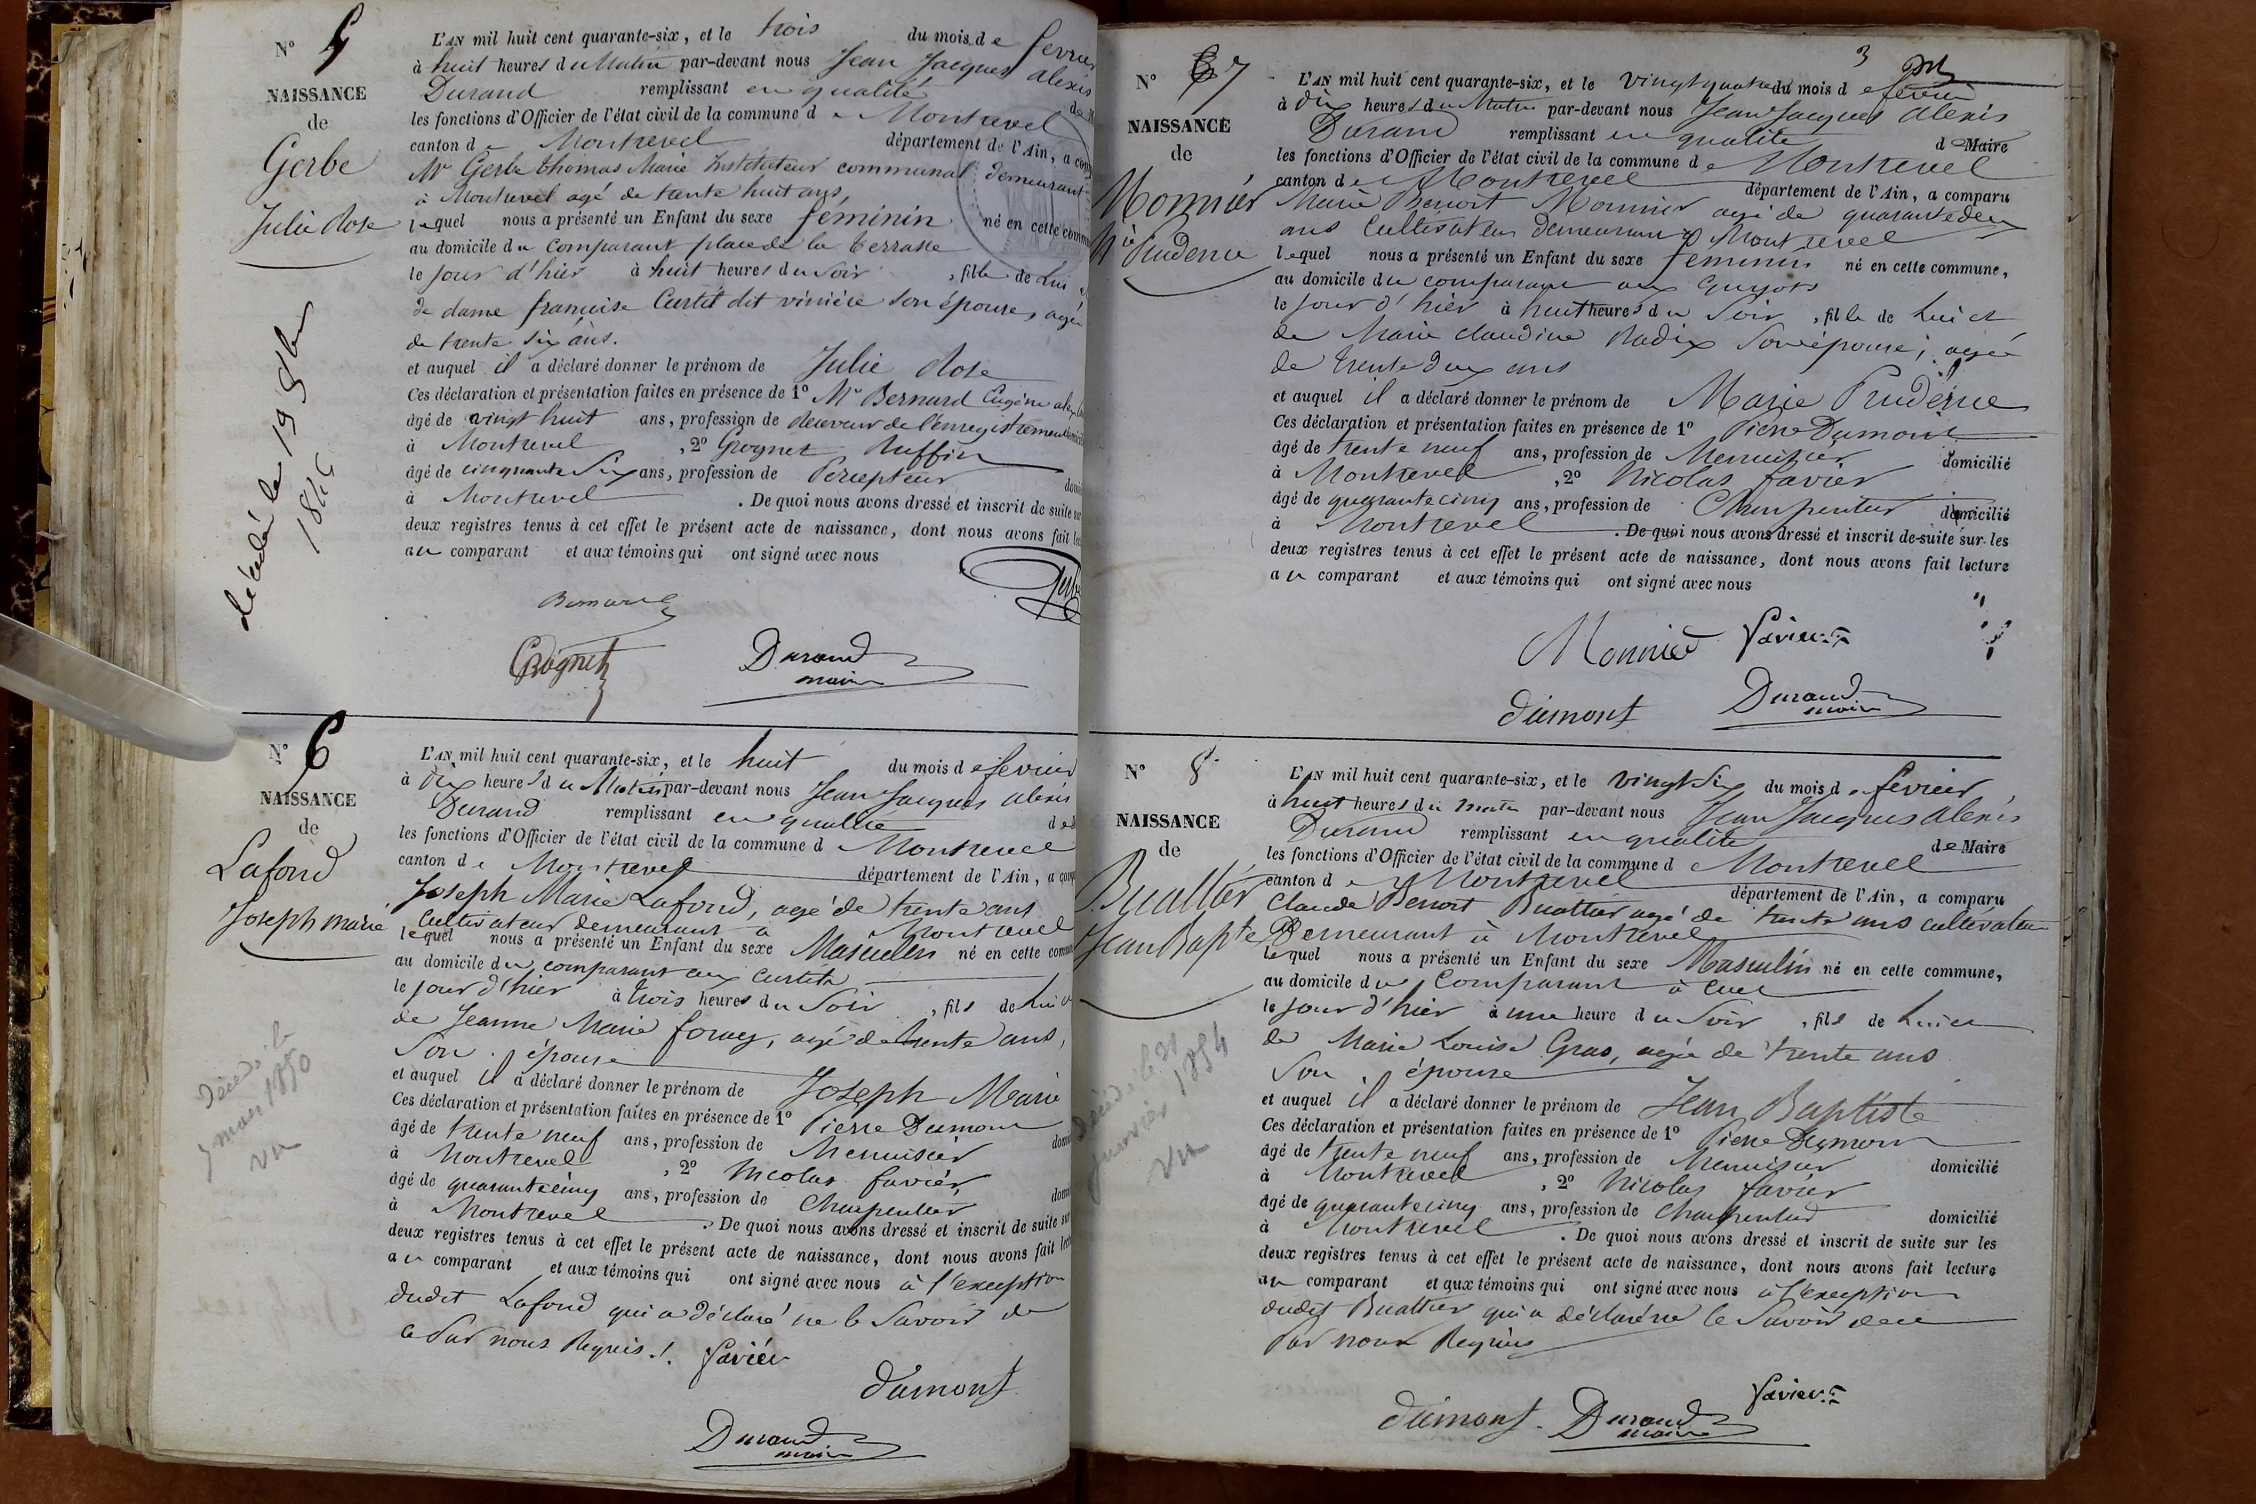 N° 5
NAISSANCE
de
Gerbe
Julie Rose
décédé le 19 8bre
L'AN mil huit cent quarante-six, et le trois du mois de fevrier
à huit heures du Matin par-devant nous Jean Jacques alexis
Durand remplissant en qualité de
les fonctions d'Officier de l'état civil de la commune de Montrevel
canton de Montrevel département de l'Ain, a comp
Mr Gerbe thomas Marie Instituteur communal demeurant
à Montrevel agé de trente huit ans,
lequel nous a présenté un Enfant du sexe féminin né en cette comm
au domicile du comparant place de la terrasse
le jour d'hier à huit heures du soir, fille de Lui et
de dame francoise Curtet dit viniére son épouse, agée
de trente six ans.
et auquel il a déclaré donner le prénom de Julie Rose
Ces déclaration et présentation faites en présence de 1° Mr Bernard Eugène
âgé de vingt huit ans, profession de Receveur de l'enregistrement
à Montrevel, 2° Grognet Ruffin
âgé de cinquante six ans, profession de Percepteur domi
à Montrevel. De quoi nous avons dressé et inscrit de suite sur
deux registres tenus à cet effet le présent acte de naissance, dont nous avons fait lec
au comparant et aux témoins qui ont signé avec nous
Bernard
Gerbe
Grognet
Durand
maire
N° 6
NAISSANCE
de
Lafond
Joseph marie
Décédé le
7 mars 1850
vu
L'AN mil huit cent quarante-six, et le huit du mois de fevrier
à Dix heures du Matin par-devant nous Jean Jacques alexis
Durand remplissant en qualité de
les fonctions d'Officier de l'état civil de la commune d Montrevel
canton de Montrevel département de l'Ain, a comp
Joseph Marie Lafond, agé de trente ans
Cultivateur demeurant à Montrevel
lequel nous a présenté un Enfant du sexe Masculin né en cette comm
au domicile du comparant aux Curtets
le jour d'hier à trois heures du Soir, fils de Lui et
de Jeanne Marie foray, agé de trente ans,
Son épouse
et auquel il a déclaré donner le prénom de Joseph Marie
Ces déclaration et présentation faites en présence de 1° Pierre Dumont
âgé de trente neuf ans, profession de Menuisier domi
à Montrevel, 2° Nicolas favier,
âgé de quarante cinq ans, profession de Charpentier domi
à Montrevel. De quoi nous avons dressé et inscrit de suite sur
deux registres tenus à cet effet le présent acte de naissance, dont nous avons fait lect
au comparant et aux témoins qui ont signé avec nous à l'exception
dudit Lafond qui a déclaré ne le Savoir de
ce par nous Requis.
favier
dumont
Durand
maire
3
N° 7
NAISSANCE
de
Monnier
Mie Prudence
L'AN mil huit cent quarante-six, et le vingt quatre du mois de fevrier
à dix heures du Matin par-devant nous Jean Jacques alexis
Durand remplissant en qualité de Maire
les fonctions d'Officier de l'état civil de la commune de Montrevel
canton de Montrevel département de l'Ain, a comparu
Marie Benoit Monnier agé de quarante deux
ans Cultivateur demeurant à Montrevel
lequel nous a présenté un Enfant du sexe feminin né en cette commune,
au domicile du comparant aux Guyots
le jour d'hier à huit heures du Soir, fille de Lui et
de Marie claudine Radix Son épouse, agée
de trente deux ans
et auquel il a déclaré donner le prénom de Marie Prudence
Ces déclaration et présentation faites en présence de 1° Pierre Dumont
âgé de trente neuf ans, profession de Menuisier domicilié
à Montrevel, 2° Nicolas favier
âgé de quarante cinq ans, profession de Charpentier domicilié
à Montrevel. De quoi nous avons dressé et inscrit de suite sur les
deux registres tenus à cet effet le présent acte de naissance, dont nous avons fait lecture
au comparant et aux témoins qui ont signé avec nous
Monnier favier
dumont Durand
maire
N° 8
NAISSANCE
de
Buattier
Jean Bapte
Décédé le 21
Janvier 1854
vu
L'AN mil huit cent quarante-six, et le vingt Six du mois de fevrier
à huit heures du matin par-devant nous Jean Jacques Alexis
Durand remplissant en qualité de Maire
les fonctions d'Officier de l'état civil de la commune de Montrevel
canton de Montrevel département de l'Ain, a comparu
Claude Benoit Buattier agé de trente ans cultivateur
Demeurant à Montrevel
lequel nous a présenté un Enfant du sexe Masculin né en cette commune,
au domicile du Comparant à Cuet
le jour d'hier à une heure du Soir, fils de Lui et
de Marie Louise Gras, agée de trente ans
Son épouse
et auquel il a déclaré donner le prénom de Jean Baptiste
Ces déclaration et présentation faites en présence de 1° Pierre Dumont
âgé de trente neuf ans, profession de Menuisier domicilié
à Montrevel, 2° Nicolas favier
âgé de quarante cinq ans, profession de Charpentier domicilié
à Montrevel. De quoi nous avons dressé et inscrit de suite sur les
deux registres tenus à cet effet le présent acte de naissance, dont nous avons fait lecture
au comparant et aux témoins qui ont signé avec nous à l'exception
dudit Buattier qui a déclaré ne le Savoir de ce
Par nous Requis
favier
dumont. Durand
maire